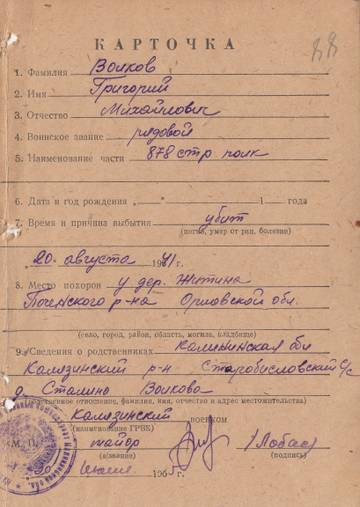 88
КАРТОЧКА
1. Фамилия Волков
2. Имя Григорий
3. Отчество Михайлович
4. Воинское звание рядовой
5. Наименование части 878 стр полк
6. Дата и год рождения „ “ 1 года
7. Время и причина выбытия убит
(погиб, умер от ран, болезни)
„20“ августа 1941г.
8. Место похорон у дер. Житина
Почепского р-на Орловской обл.
(село, город, район, область, могила, кладбище)
9. Сведения о родственниках Калининская обл
Калязинский р-н Старобисловский с/с
д. Сталино Волкова
(родственное отношение, фамилия, имя, отчество и адрес местожительства)
Калязинский военком
(наименование ГРВК)
М. П. майор /Лобас/
(звание) (подпись)
июля 1965г.